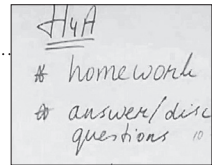 H4A
* homework
* answer/disc
questions 10